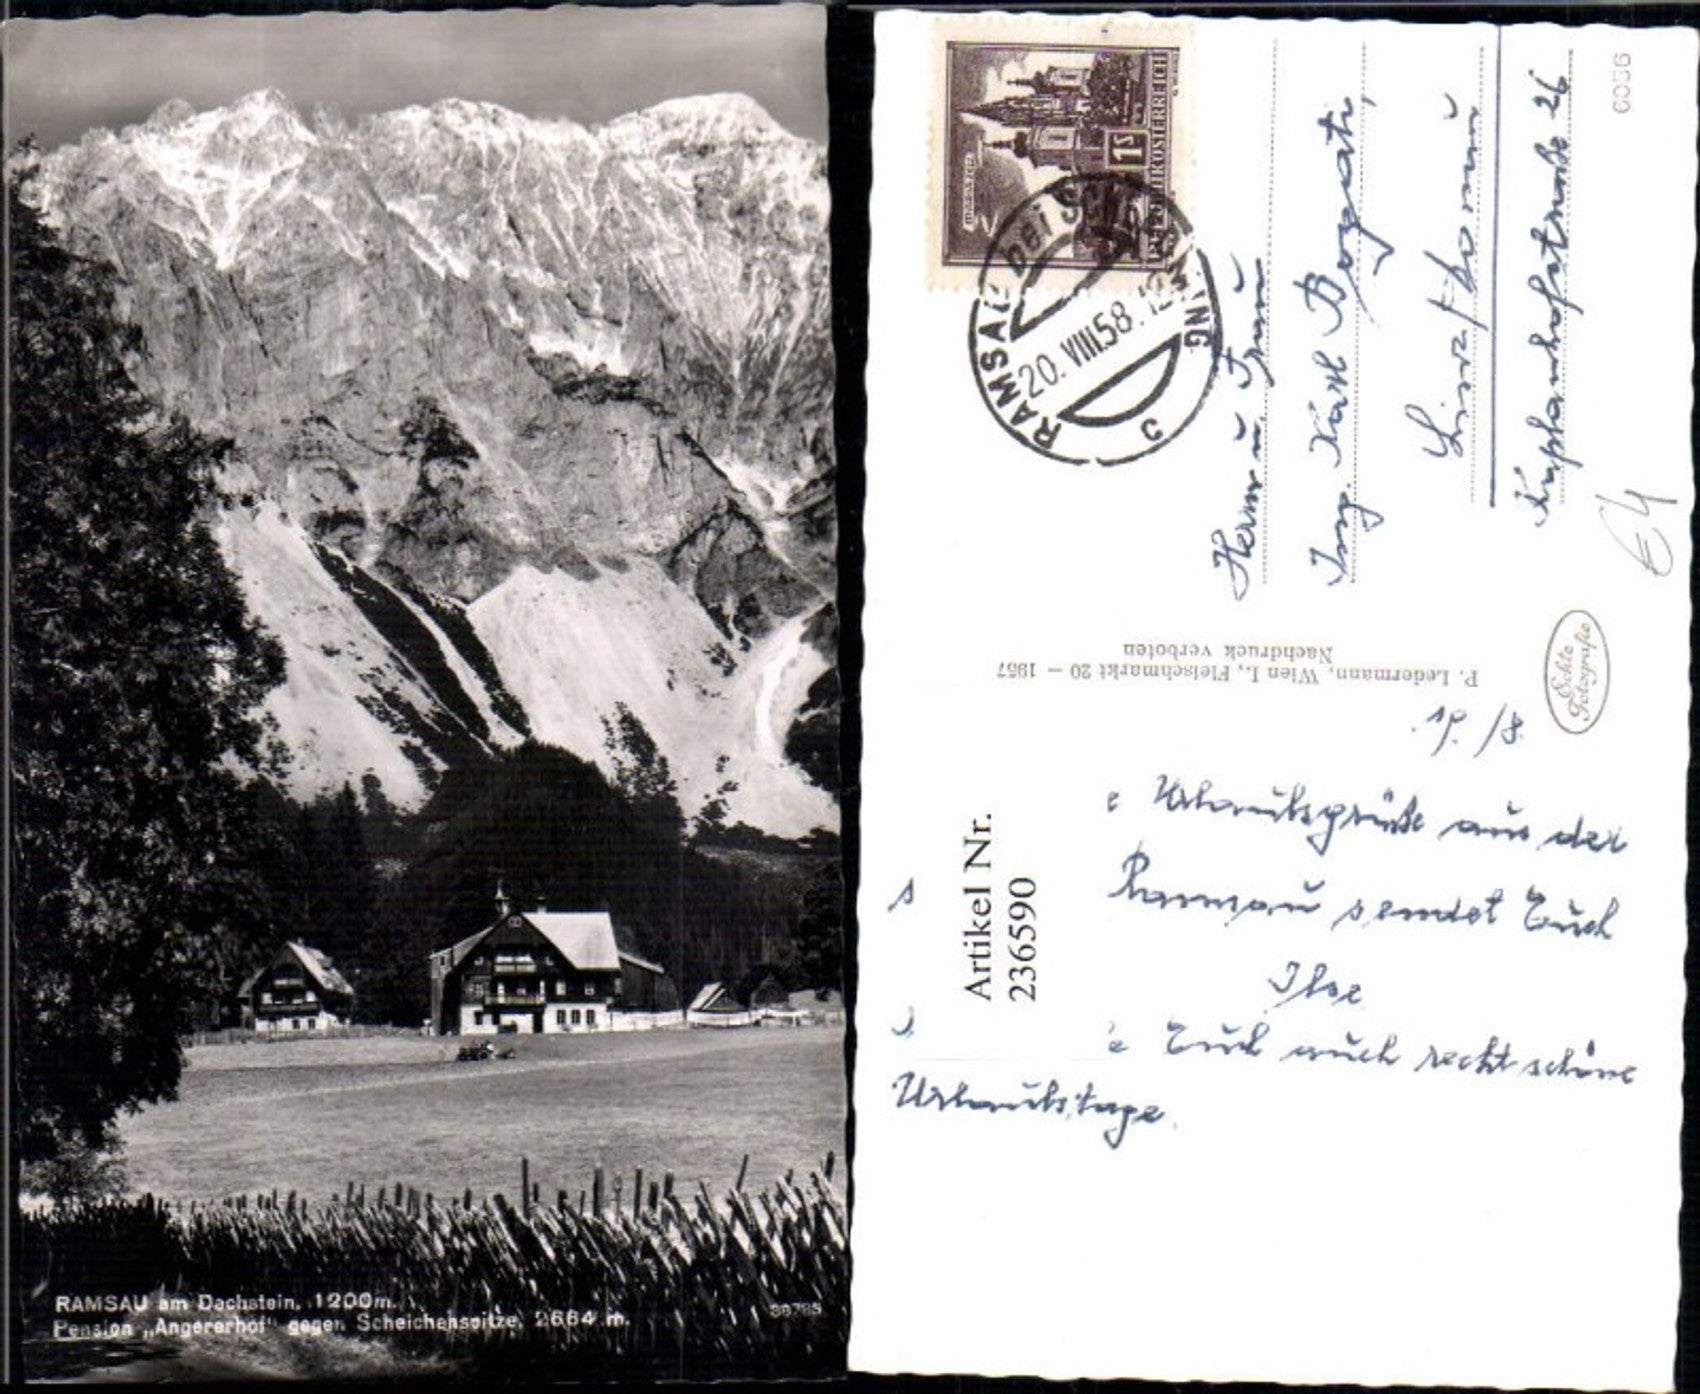 RAMSAU am Dachstein, 1200m.
Pension „Angererhof" gegen Scheichenspitze, 2664 m.
MARIAZELL
1S
REPUBLIK ÖSTERREICH
RAMSAU bei SCHLADMING
20. VIII. 58. 12
C
Herrn u. Frau
Ing. Karl
Linz / Donau
26
6036
€ 4
P. Ledermann, Wien I., Fleischmarkt 20 – 1957
Nachdruck verboten
Echte
Fotografie
19./8.
Urlaubsgrüße aus der
Ramsau sendet Euch
Ilse
Euch auch recht schöne
Urlaubstage.
Artikel Nr.
236590